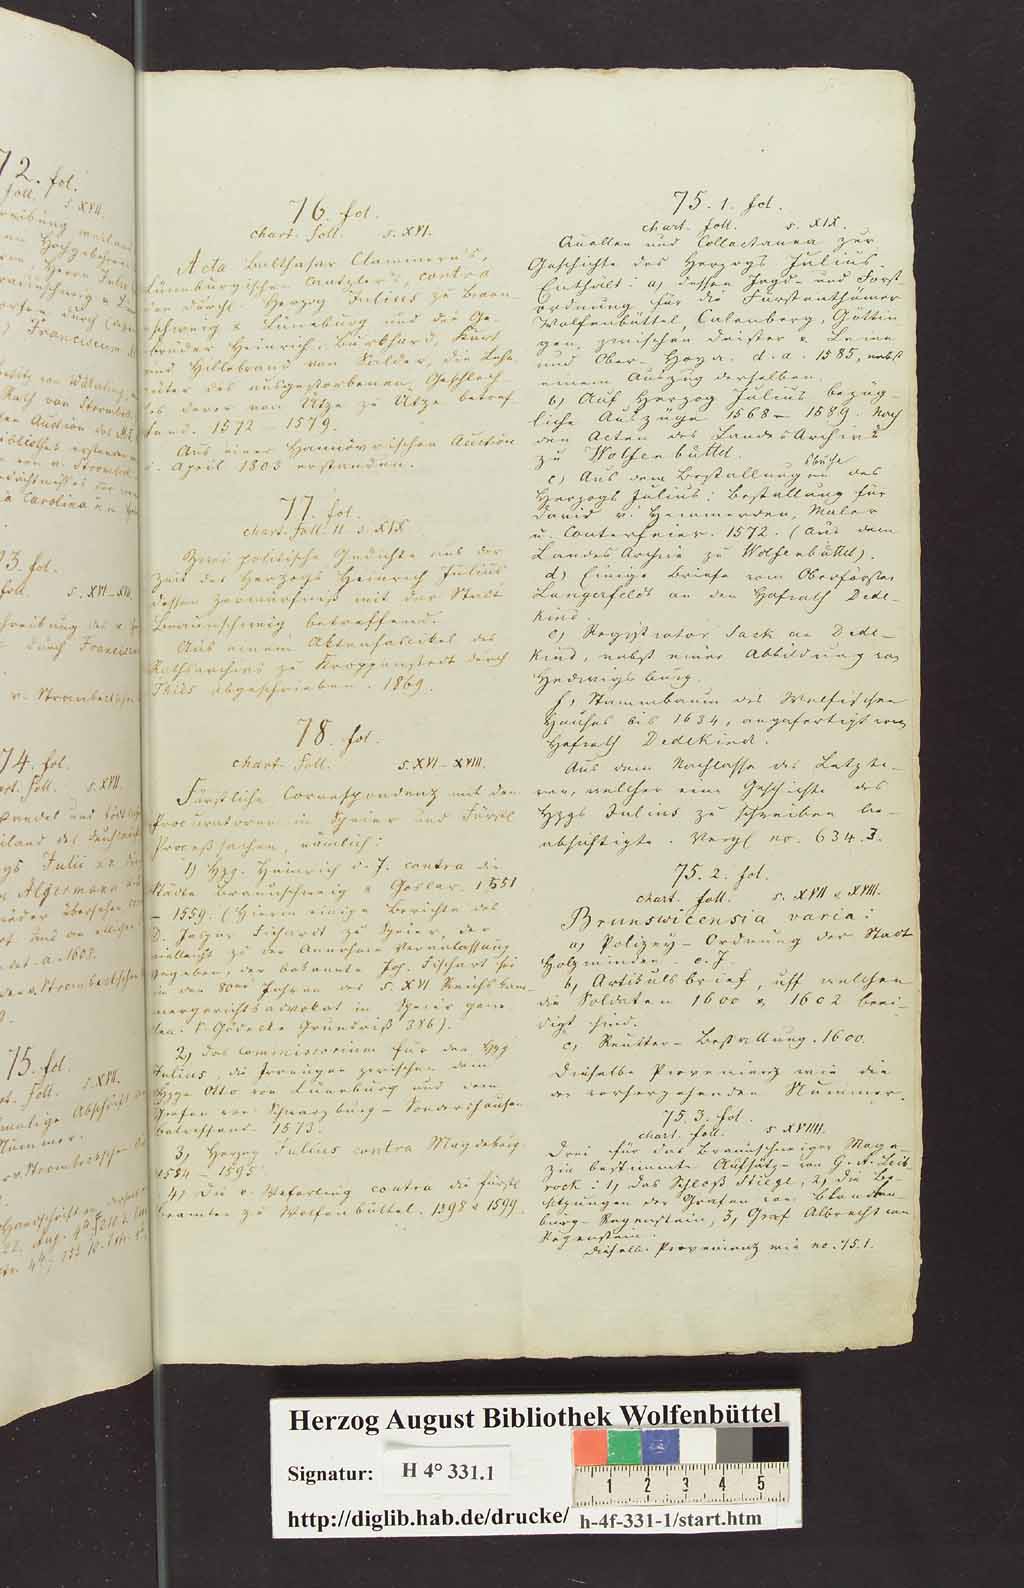 76. fol.
chart. foll. s. XVI.
Acta Balthasar Clammer's,
Lüneburgischen Cantzlers, contra
den durchl. Herzog Julius zu Braun-
schweig & Lüneburg und die Ge-
brüder Heinrich, Burkhard, Kurt
und Hillebrand von Salder, die Lehn
güter des ausgestorbenen Geschlech
tes derer von Utze zu Utze betref
fend. 1572 – 1579.
Aus einer Hannövrischen Auction
i. April 1803 erstanden.
77. fol.
chart. foll. 11 s. XIX
Zwei politische Gedichte aus der
Zeit des Herzogs Heinrich Julius
dessen Zerwürfniß mit der Stadt
Braunschweig betreffend.
Aus einem Aktenfascikel des
Rathsarchivs zu Kroppenstedt durch
Thies abgeschrieben. 1869.
78. fol.
chart. foll. s. XVI – XVIII.
Fürstliche Correspondenz mit den
Procuratoren in Speier und Fürstl
Proceßsachen, nämlich:
1) Hzg. Heinrich d. J. contra die
Städte Braunschweig & Goslar. 1551
– 1559. (Hierin einige Berichte des
D. Fichardt zu Speier, der
vielleicht zu der Annahme Veranlassung
gegeben, der bekannte Joh. Fischart sei
in den 80er Jahren des s. XVI Reichskam-
mergerichtsadvokat in Speier gewe
sen: v. Gödecke Grundriß 386).
2) Das Commissorium für den Hzg
Julius, die Irrungen zwischen dem
Hzge Otto von Lüneburg und dem
Grafen von Schwarzburg – Sondershausen
betreffend. 1573.
3, Herzog Julius contra Magdeburg.
1584 – 1595
4) Die v. Weferling contra die fürstl
Beamten zu Wolfenbüttel. 1598 & 1599.
75. 1. fol.
chart. foll. s. XIX.
Quellen und Collectanea zur
Geschichte des Herzogs Julius.
Enthält: a) dessen Jagd- und Forst
ordnung für die Fürstenthümer
Wolfenbüttel, Calenberg, Göttin
gen, zwischen Deister & Leine
und Ober-Hoya. d. a. 1585, nebst
einem Auszug derselben.
b) Auf Herzog Julius bezüg-
liche Auszüge 1568 – 1589. Nach
den Acten des LandesArchivs
zu Wolfenbüttel.
c) Aus dem Bestallungsbuche des
Herzogs Julius: Bestallung für
David v. Hemmerden, Maler
u. Conterfeier. 1572. (Aus dem
Landes Archiv zu Wolfenbüttel).
d) Einige Briefe vom Oberförster
Langerfeldt an den Hofrath Dede-
kind.
e) Registrator Sack an Dede-
kind, nebst einer Abbildung von
Hedwigsburg.
f) Stammbaum des Welfischen
Hauses bis 1634, angefertigt vom
Hofrath Dedekind.
Aus dem Nachlasse des Letzte-
ren, welcher eine Geschichte des
Hzgs Julius zu schreiben be-
absichtigte. Vergl no. 634.3.
75. 2. fol.
chart. foll. s. XVII & XVIII.
Brunswicensia varia:
a) Polizey – Ordnung der Stadt
Holzminden. e. J.
b, Artikulsbrief, uff welchen
die Soldaten 1600 & 1602 beei-
digt sind.
c, Reutter – Bestallung. 1600.
Dieselbe Provenienz wie die
der vorhergehenden Nummer.
75. 3. fol.
chart. foll. s XVIII.
Drei für das Braunschweiger Maga-
zin bestimmte Aufsätze von G. A. Leib-
rock: 1) Das Schloß Stiege, 2, die Be-
sitzungen der Grafen von Blanken-
burg – Regenstein, 3, Graf Albrecht von
Regenstein.
Dieselbe Provenienz wie no. 75.1.
72. fol.
foll. s. XVII.
Franciscum
73. fol.
foll. s. XVI – XVII
74. fol.
foll. s. XVII.
Algermann
75. fol.
foll. s. XVII.
Herzog August Bibliothek Wolfenbüttel
Signatur: H 4° 331.1
http://diglib.hab.de/drucke/ h-4f-331-1/start.htm
1 2 3 4 5